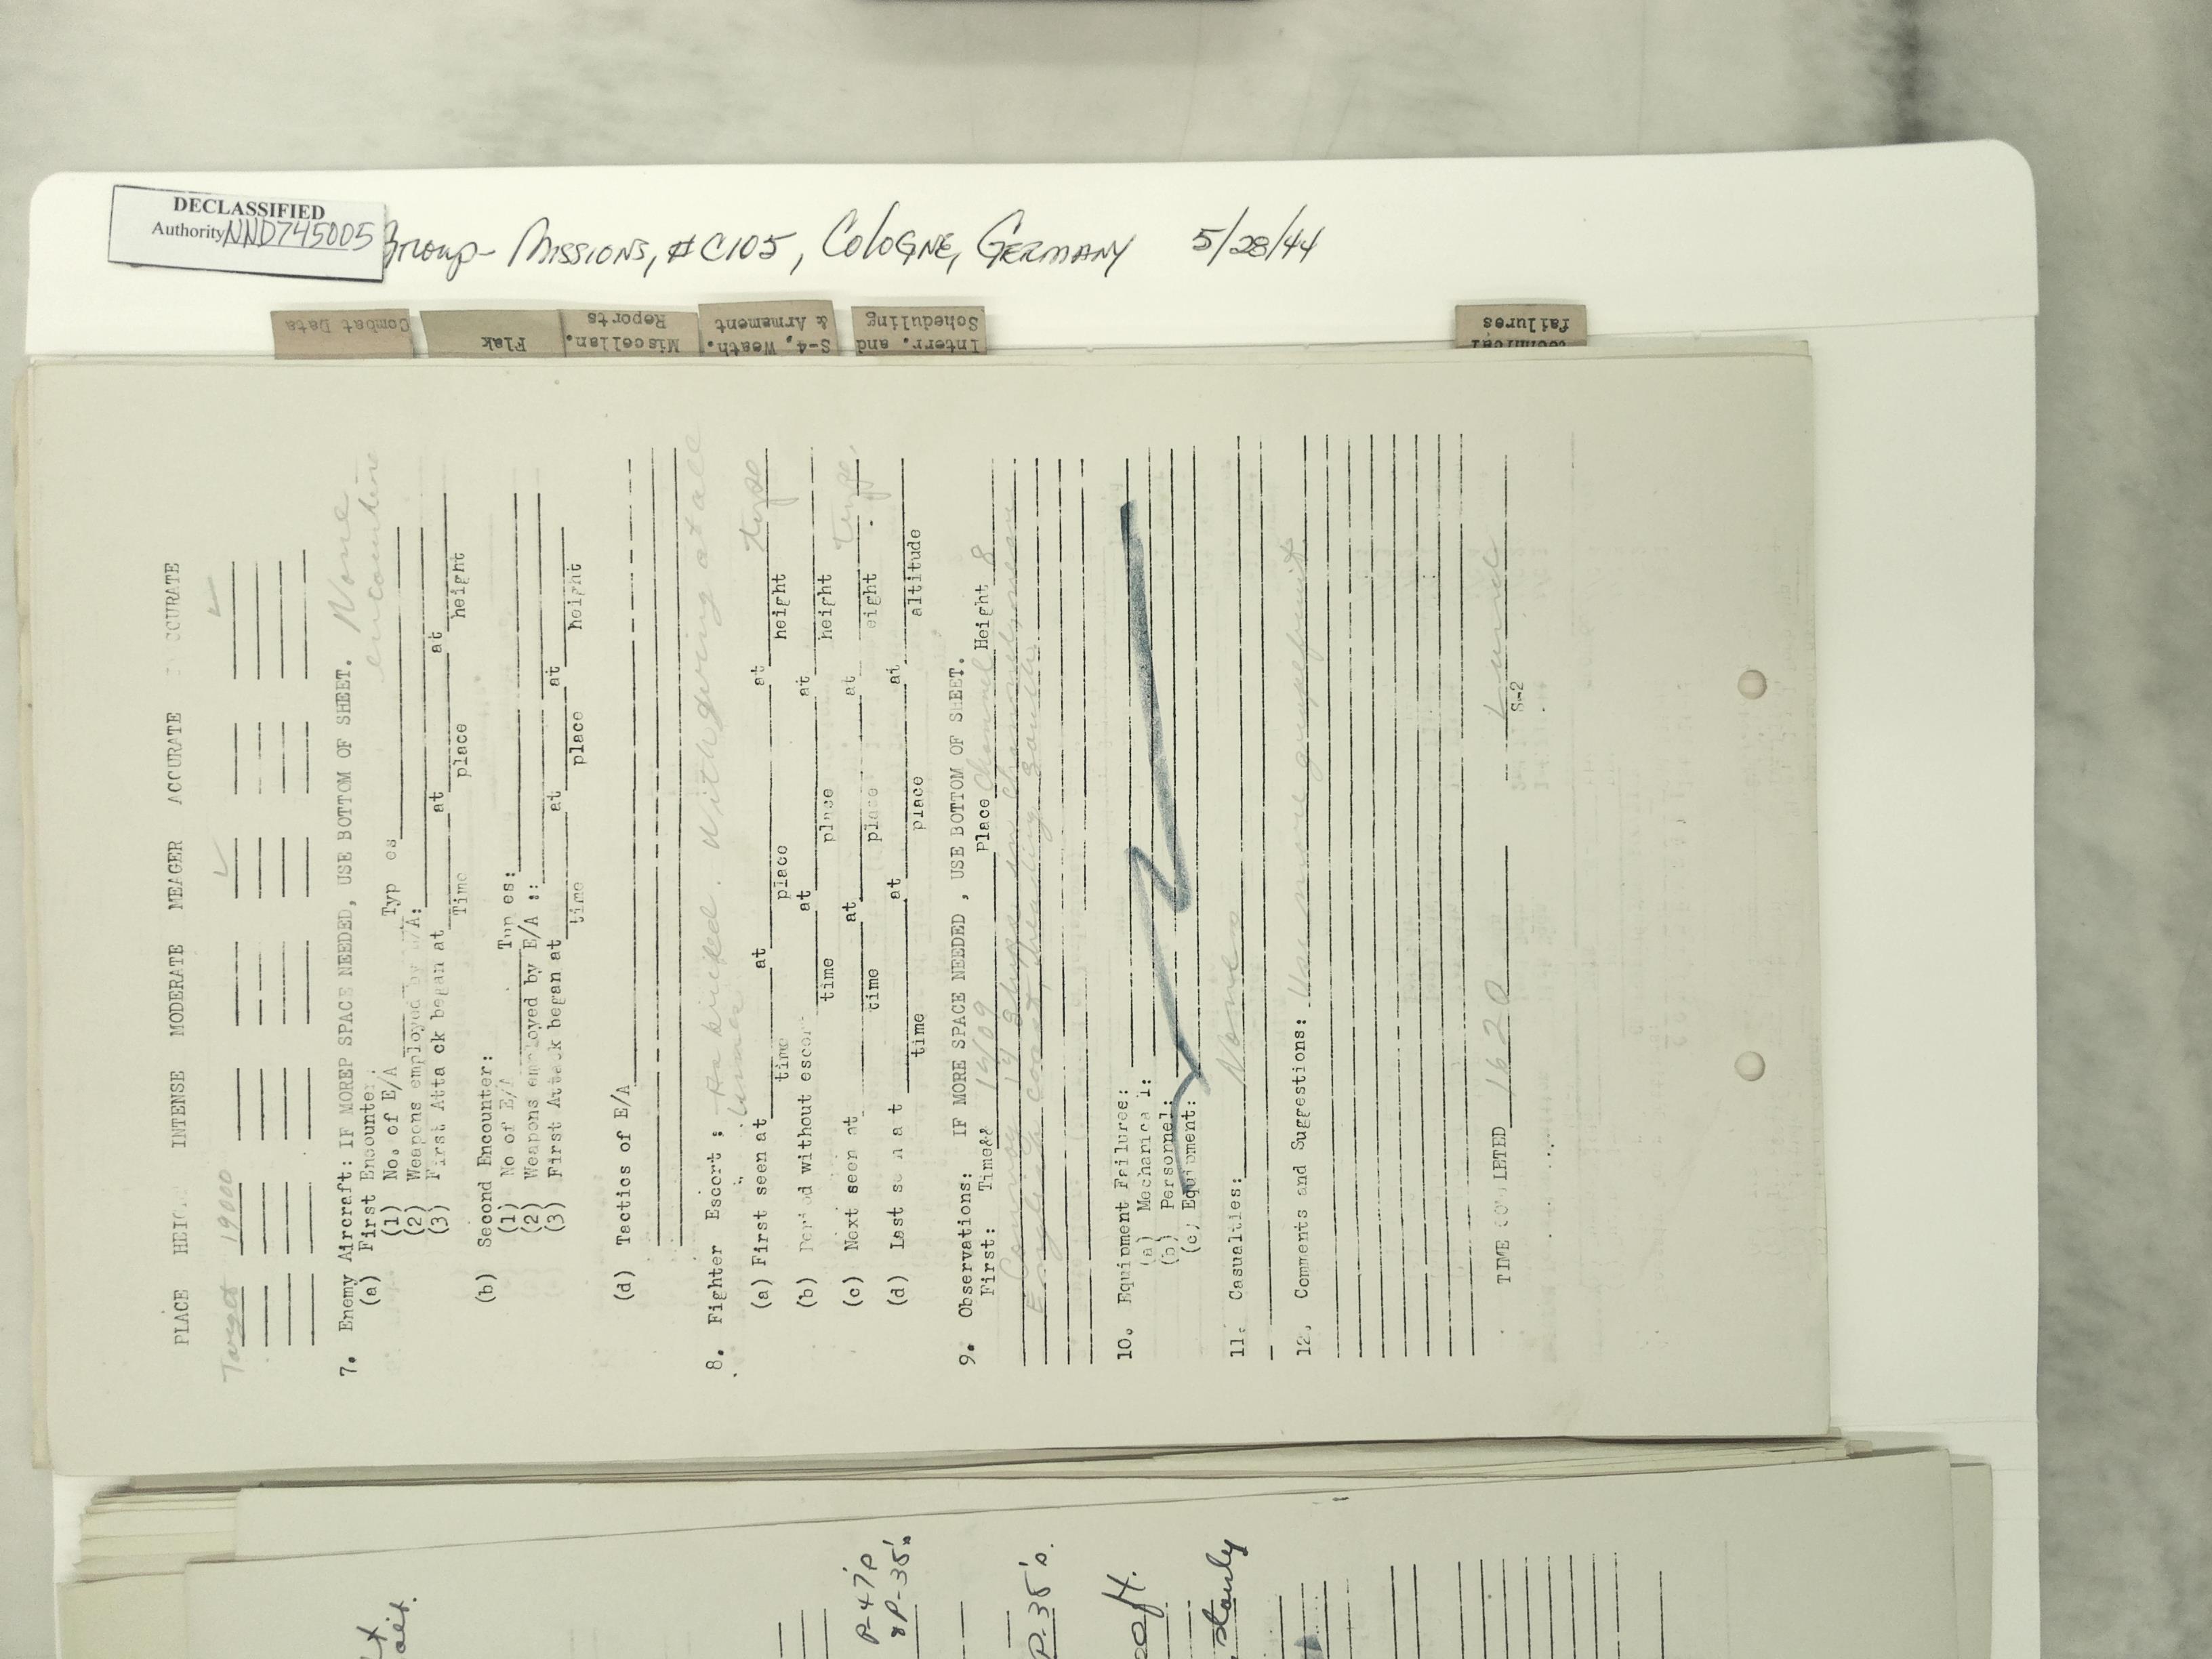 DECLASSIFIED
Authority NND745005
Group- Missions, #C105, Cologne, Germany 5/28/44
Combat Data
Flak
Miscellan.
Reports
S-4, Weath.
& Armament
Interr. and
Scheduling
failures
PLACE INTENSE MODERATE MEAGER ACCURATE
Target 19000
7. Enemy Aircraft: IF MOREP SPACE NEEDED, USE BOTTOM OF SHEET. None
(a) First Encounter. encountered
(1) No. of E/A Typ es
(2) Weapons employed by E/A:
(3) First Atta ck began at at at
Time place height
(b) Second Encounter:
(1) No of E/A Typ es:
(2) Weapons employed by E/A ::
(3) First Attack began at at at
time place height
(d) Tactics of E/A
8. Fighter Escort: As briefed. With wing at all
times
(a) First seen at at at
time place height
(b) Period without escort at at
time place height
(c) Next seen at at at
time place eight
(d) last se n a t at at
time place altitude
9. Observations: IF MORE SPACE NEEDED, USE BOTTOM OF SHEET.
First: Time&& 1409 Place Channel Height 8
Convoy 14 ships in Channel near
English coast heading south.
10. Equipment Failures:
(a) Mechanical:
(b) Personnel:
(c) Equipment:
11. Casualties: None
12. Comments and Suggestions: Use more grapefruit.
TIME COMPLETED 1620
S-2
P-47's
& P-38's
P-38's.